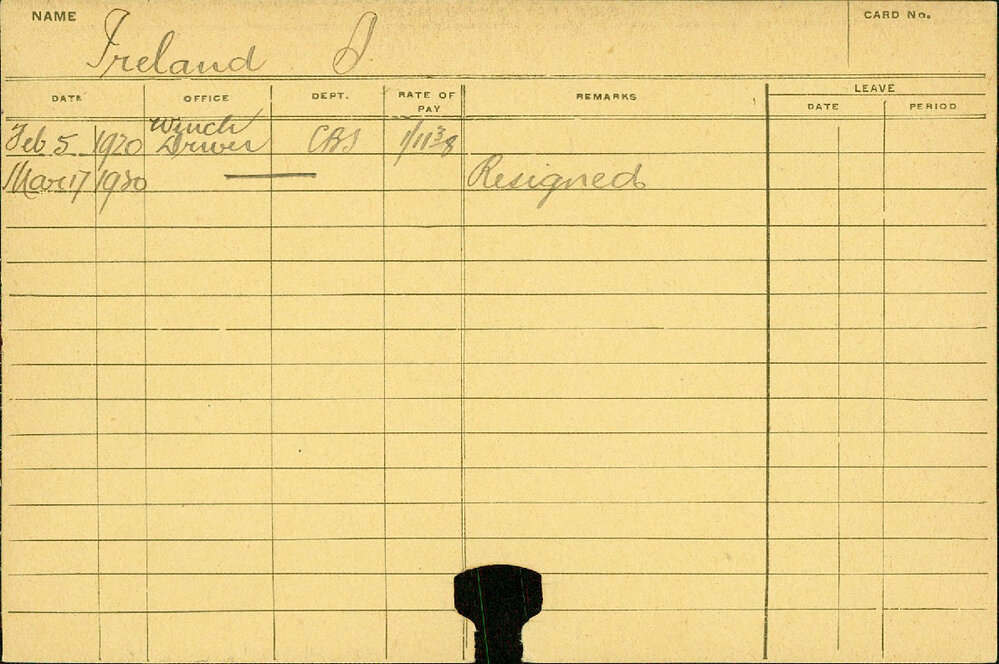 NAME
CARD No.
Ireland J.
DATE OFFICE DEPT. RATE OF PAY REMARKS LEAVE
DATE PERIOD
Feb 5 1920 Winch Driver 1/11 3/8
Mar 17 1930 Resigned